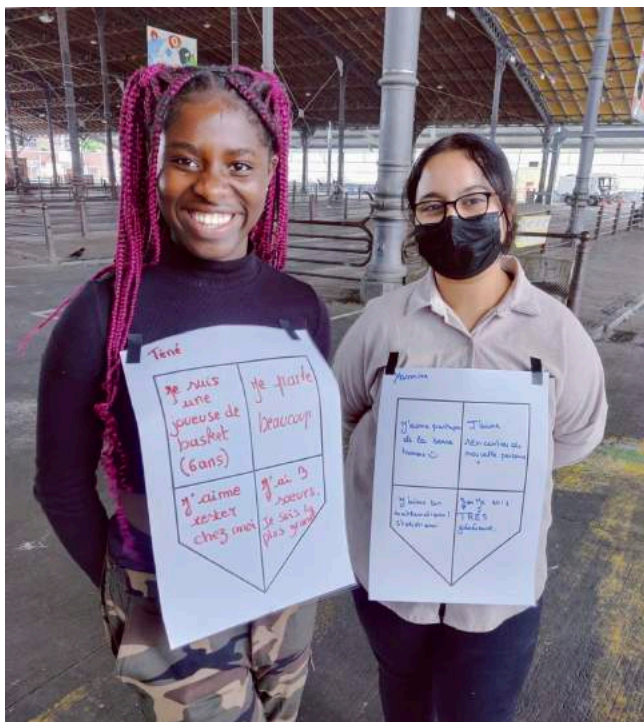 Téné
Je suis
une
joueuse de
basket
(6ans)
Je parle
beaucoup
J'aime
rester
chez moi
J'ai 3
soeurs,
je suis la
plus grande
J'aime partager
de la bonne
humeur
J'aime
rencontrer de
nouvelle personne
J'aime les
mathématiques
Je suis
TRÈS
généreuse.